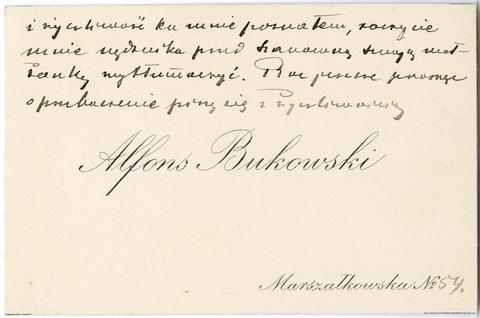 i życzliwość ku mnie poznałem, raczycie
mnie nędznika przed szanowną swoją mał-
żonką wytłumaczyć. Raz jeszcze prosząc
o przebaczenie piszę się z życzliwością
Alfons Bukowski
Marszałkowska № 54.